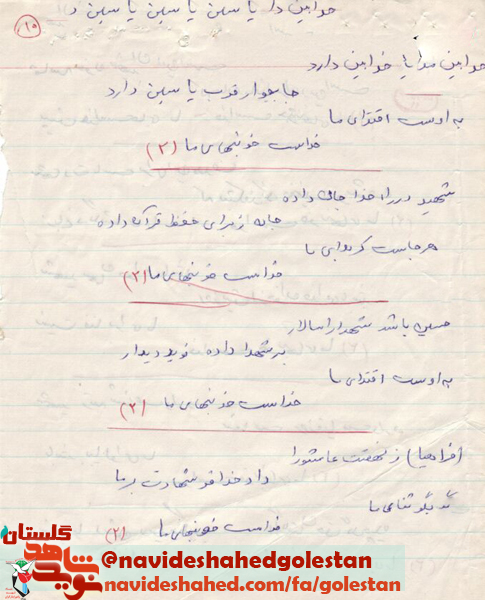 ۱۰
خوابین دا یا سین یا سین یا سین
خوابین دارد
جا بجوار قرب یا سین دارد
به اوست اقتدای ما
خداست خونبهای ما (۲)
شهید در راه خدا جان داده
جان از برای حفظ قرآن داده
هرجاست کربلای ما
خداست خونبهای ما (۲)
حسین باشد شهدا را سالار
بر شهدا داده نوید دیدار
به اوست اقتدای ما
خداست خونبهای ما (۲)
ز نهضت عاشورا
داد خدا شهادت بر ما
ثنای ما
خداست خونبهای ما (۲)
گلستان
نوید شاهد
@navideshahedgolestan
navideshahed.com/fa/golestan